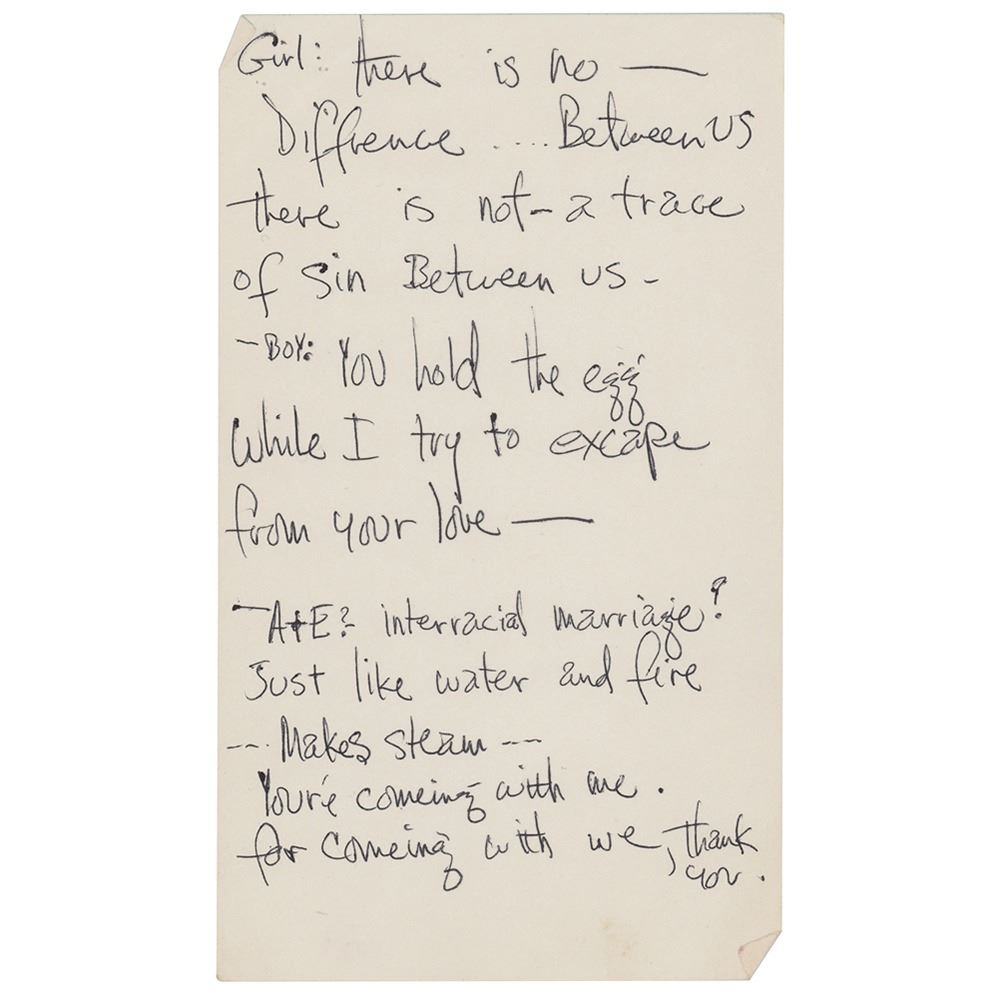 Girl: there is no —
Diffrence .... Between US
there is not - a trace
of Sin Between us -
- BOY: You hold the egg
While I try to excape
from your love —
- A+E? interracial marriage?
Just like water and fire
--- Makes steam ---
You're comeing with me .
for comeing with we, thank
you .